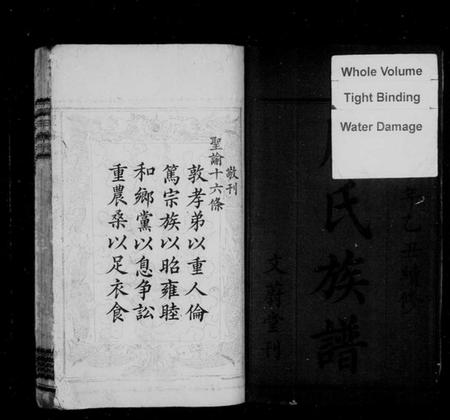 Whole Volume
Tight Binding
Water Damage
年乙丑
氏族譜
文蔚堂刊
敬刊
聖諭十六條
敦孝弟以重人倫
篤宗族以昭雍睦
和鄉黨以息争訟
重農桑以足衣食